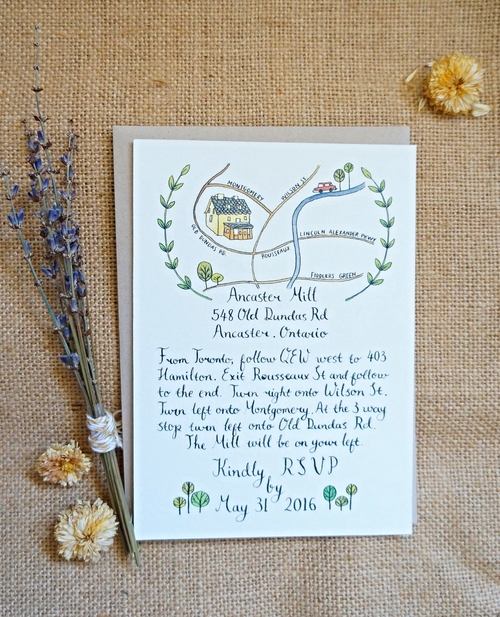 MONTGOMERY
WILSON ST.
OLD DUNDAS RD.
ROUSSEAUX
LINCOLN ALEXANDER PKWY
FIDDLERS GREEN
Ancaster Mill
548 Old Dundas Rd
Ancaster. Ontario
From Toronto, follow QEW west to 403
Hamilton. Exit Rousseaux St and follow
to the end. Turn right onto Wilson St.
Turn left onto Montgomery. At the 3 way
stop turn left onto Old Dundas Rd.
The Mill will be on your left
Kindly RSVP
by
May 31 2016